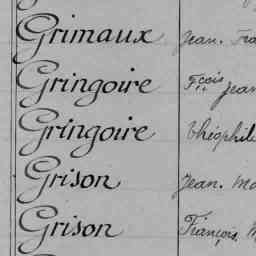 Grimaux Jean.
Gringoire Fçois Jean
Gringoire Théophile
Grison Jean.
Grison François,